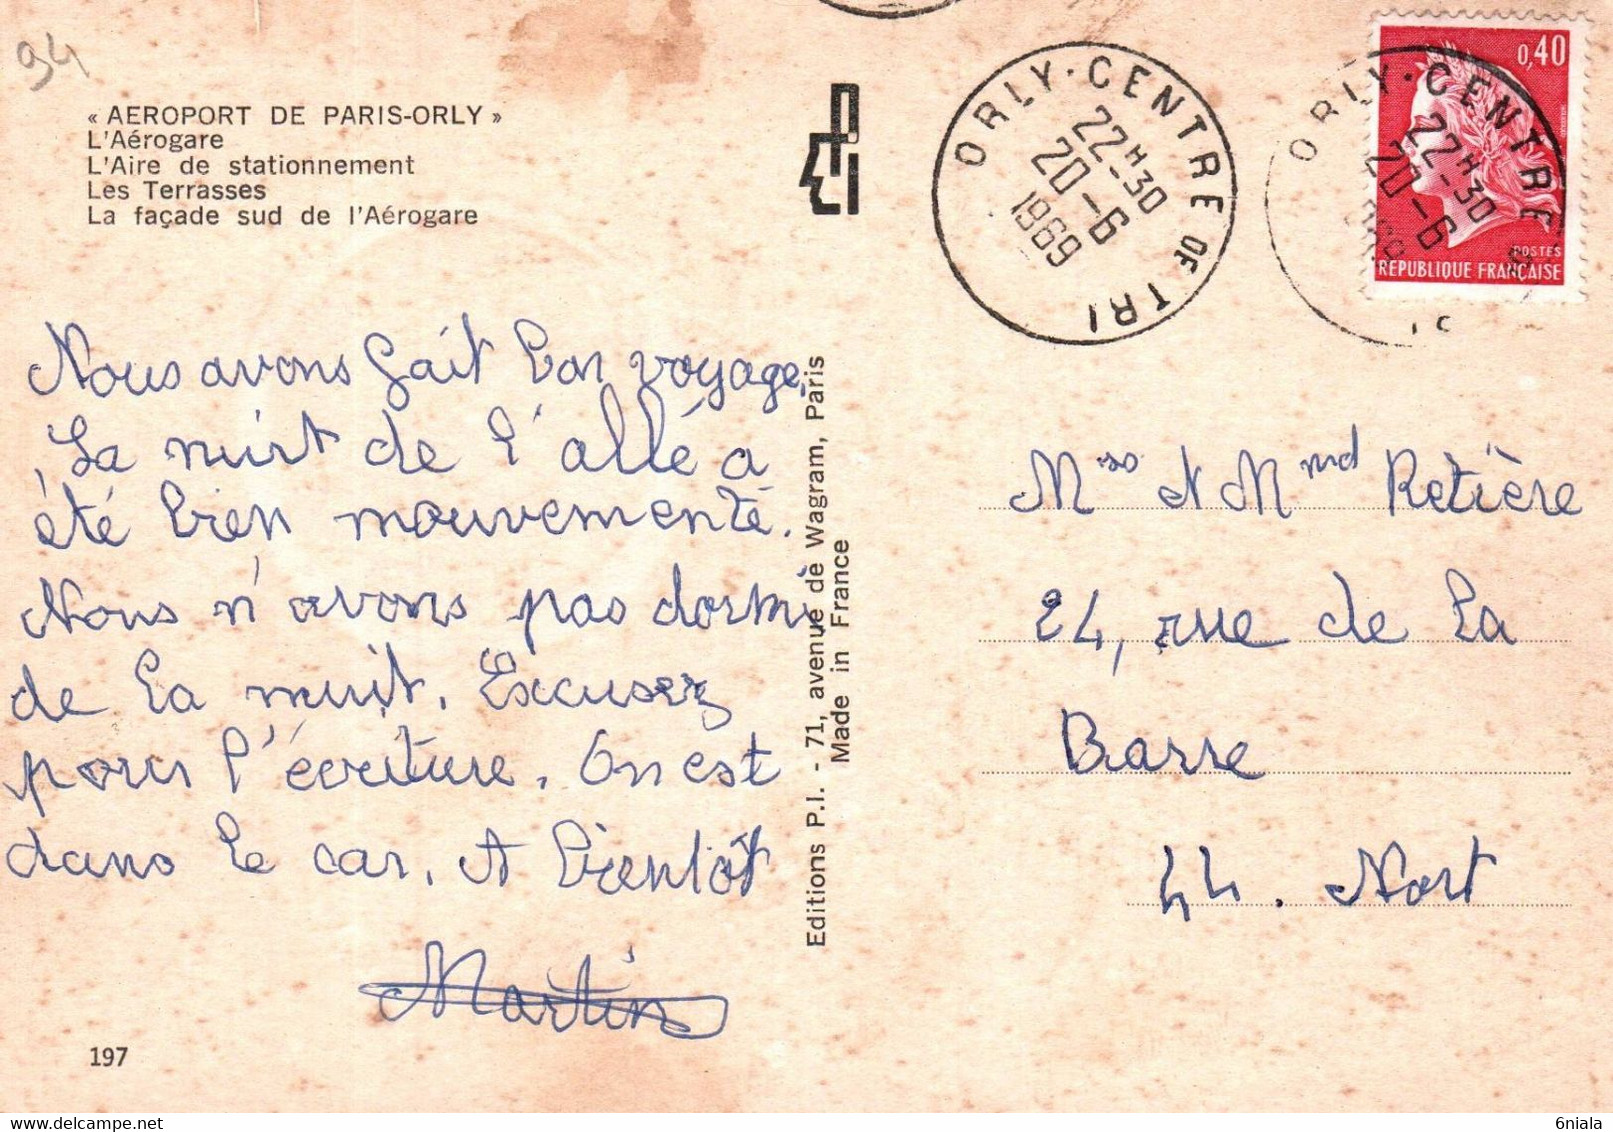 94
« AEROPORT DE PARIS-ORLY »
L'Aérogare
L'Aire de stationnement
Les Terrasses
La façade sud de l'Aérogare
ORLY · CENTRE DE TRI
22H-30
20-6
1969
ORLY · CENTRE
22H-30
20-6
0,40
POSTES
REPUBLIQUE FRANÇAISE
Nous avons fait bon voyage,
La nuit de l'allé a
été bien mouvementé.
Nous n'avons pas dormi
de la nuit. Excusez
pour l'écriture. On est
dans le car. A bientôt
Martin
197
Editions P.I. - 71, avenue de Wagram, Paris
Made in France
et Retière
24, rue de la
Barre
44. Nort
6niala